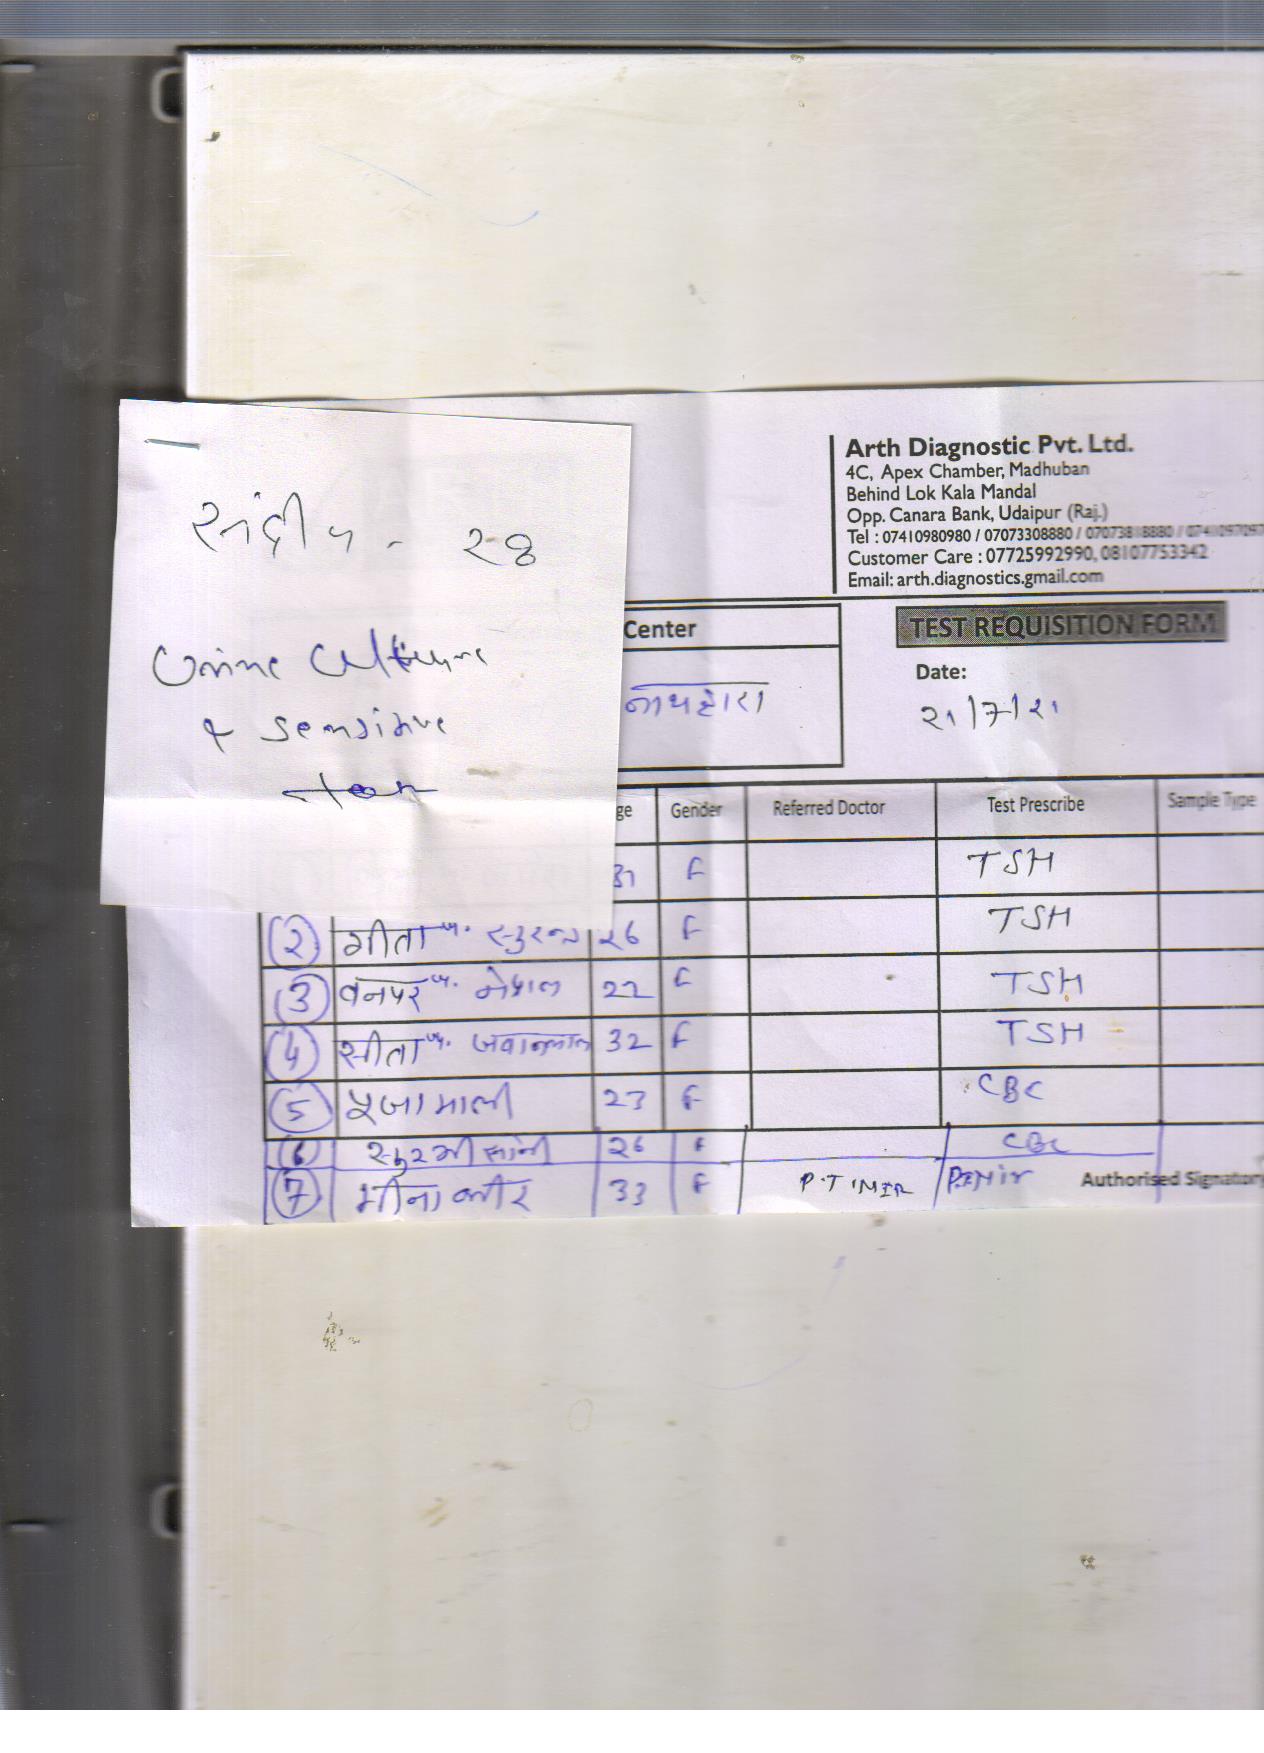 संदीप - २७
Urine culture
& sensitive
Arth Diagnostic Pvt. Ltd.
4C, Apex Chamber, Madhuban
Behind Lok Kala Mandal
Opp. Canara Bank, Udaipur (Raj.)
Tel : 07410980980 / 07073308880 / 07073818880 /
Customer Care : 07725992990, 08107753342
Email: arth.diagnostics.gmail.com
Center
TEST REQUISITION FORM
नाथद्वारा
Date:
२१/7/२१
ge Gender Referred Doctor Test Prescribe Sample Type
31 F TSH
(२) गीता २६ F TSH
(3) 22 F TSH
(4) सीता 32 F TSH
(5) पूजा माली 23 F CBC
(6) २६ F CBC
(7) मीना 33 F
Authorised Signatory